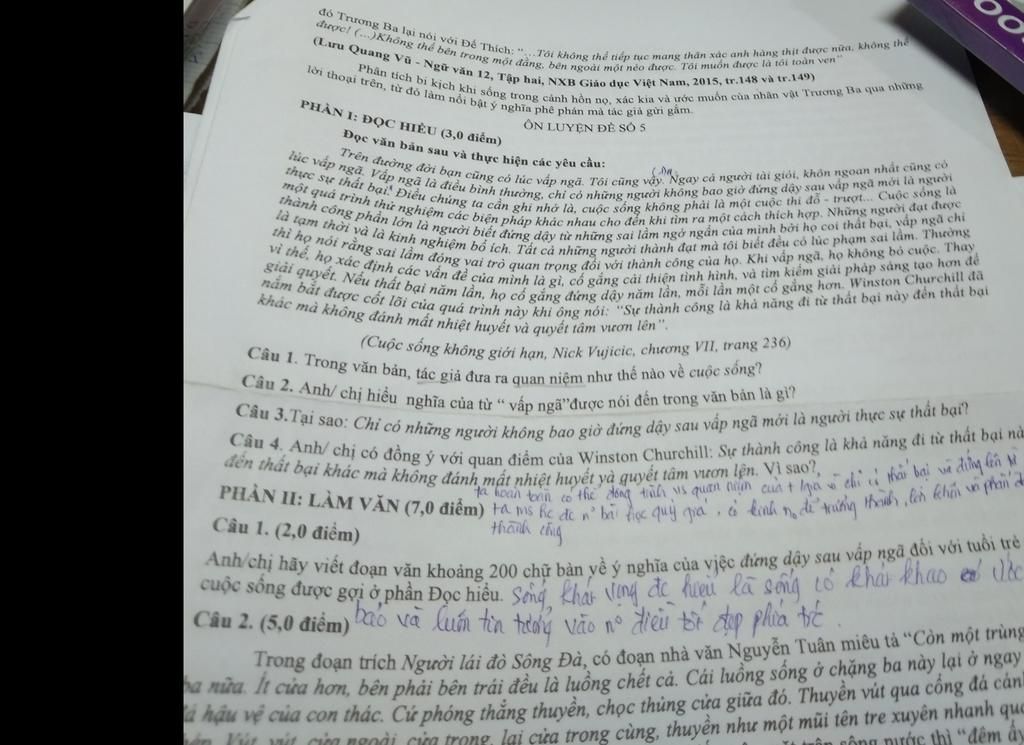 đó Trương Ba lại nói với Đế Thích: "...Tôi không thể tiếp tục mang thân xác anh hàng thịt được nữa, không thể
được! (...)Không thể bên trong một đằng, bên ngoài một nẻo được. Tôi muốn được là tôi toàn vẹn"
(Lưu Quang Vũ - Ngữ văn 12, Tập hai, NXB Giáo dục Việt Nam, 2015, tr.148 và tr.149)
Phân tích bi kịch khi sống trong cảnh hồn nọ, xác kia và ước muốn của nhân vật Trương Ba qua những
lời thoại trên, từ đó làm nổi bật ý nghĩa phê phán mà tác giả gửi gắm.
ÔN LUYỆN ĐỀ SỐ 5
PHẦN I: ĐỌC HIỂU (3,0 điểm)
Đọc văn bản sau và thực hiện các yêu cầu:
Trên đường đời bạn cũng có lúc vấp ngã. Tôi cũng vậy. Ngay cả người tài giỏi, khôn ngoan nhất cũng có
lúc vấp ngã. Vấp ngã là điều bình thường, chỉ có những người không bao giờ đứng dậy sau vấp ngã mới là người
thực sự thất bại. Điều chúng ta cần ghi nhớ là, cuộc sống không phải là một cuộc thi đỗ - trượt... Cuộc sống là
một quá trình thử nghiệm các biện pháp khác nhau cho đến khi tìm ra một cách thích hợp. Những người đạt được
thành công phần lớn là người biết đứng dậy từ những sai lầm ngớ ngẩn của mình bởi họ coi thất bại, vấp ngã chỉ
là tạm thời và là kinh nghiệm bổ ích. Tất cả những người thành đạt mà tôi biết đều có lúc phạm sai lầm. Thường
thì họ nói rằng sai lầm đóng vai trò quan trọng đối với thành công của họ. Khi vấp ngã, họ không bỏ cuộc. Thay
vì thế, họ xác định các vấn đề của mình là gì, cố gắng cải thiện tình hình, và tìm kiếm giải pháp sáng tạo hơn để
giải quyết. Nếu thất bại năm lần, họ cố gắng đứng dậy năm lần, mỗi lần một cố gắng hơn. Winston Churchill đã
nắm bắt được cốt lõi của quá trình này khi ông nói: "Sự thành công là khả năng đi từ thất bại này đến thất bại
khác mà không đánh mất nhiệt huyết và quyết tâm vươn lên".
(Cuộc sống không giới hạn, Nick Vujicic, chương VII, trang 236)
Câu 1. Trong văn bản, tác giả đưa ra quan niệm như thế nào về cuộc sống?
Câu 2. Anh/ chị hiểu nghĩa của từ " vấp ngã"được nói đến trong văn bản là gì?
Câu 3.Tại sao: Chỉ có những người không bao giờ đứng dậy sau vấp ngã mới là người thực sự thất bại?
Câu 4. Anh/ chị có đồng ý với quan điểm của Winston Churchill: Sự thành công là khả năng đi từ thất bại nà
đến thất bại khác mà không đánh mất nhiệt huyết và quyết tâm vươn lên. Vì sao?
ta hoàn toàn có thể đồng tình vs quan niệm của t giả vì chỉ có thất bại và đứng lên
PHẦN II: LÀM VĂN (7,0 điểm) ta ms hc đc n bài học quý giá, có kinh no để trưởng thành,
thành công
Câu 1. (2,0 điểm)
Anh/chị hãy viết đoạn văn khoảng 200 chữ bàn về ý nghĩa của việc đứng dậy sau vấp ngã đối với tuổi trẻ
cuộc sống được gợi ở phần Đọc hiểu. Sống khát vọng đc hiểu là sống có khát khao có ước
Câu 2. (5,0 điểm) bảo và luôn tin tưởng vào no điều tốt đẹp phía trc.
Trong đoạn trích Người lái đò Sông Đà, có đoạn nhà văn Nguyễn Tuân miêu tả "Còn một trùng
ba nữa. Ít cửa hơn, bên phải bên trái đều là luồng chết cả. Cái luồng sống ở chặng ba này lại ở ngay
đá hậu vệ của con thác. Cứ phóng thẳng thuyền, chọc thủng cửa giữa đó. Thuyền vút qua cổng đá cán
Vút, vút, cửa ngoài, cửa trong, lại cửa trong cùng, thuyền như một mũi tên tre xuyên nhanh qu
sông nước thì "đêm ấy